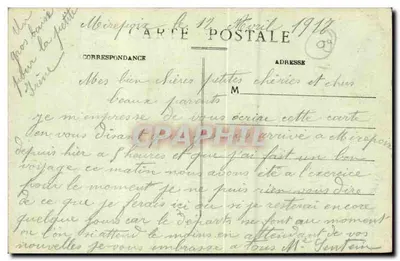 Mirepoix le 12 Avril 1917
un gros baiser pour la petite Irène
CARTE POSTALE
CORRESPONDANCE
ADRESSE
09
M
Mes bien chères petites chéries et chers
beaux parents
je m'empresse de vous écrire cette carte
vous disant arrivé a Mirepoix
depuis hier a 5 heures et que j'ai fait un bon
voyage ce matin nous avons été a l'exercice
pour le moment je ne puis rien vous dire
de ce que je ferais ici ou si je resterai encore
quelque jours car le départs se font au moment
ou l'on s'attend le moins en attendant de vos
nouvelles je vous embrasse a tous
CPAPHIL